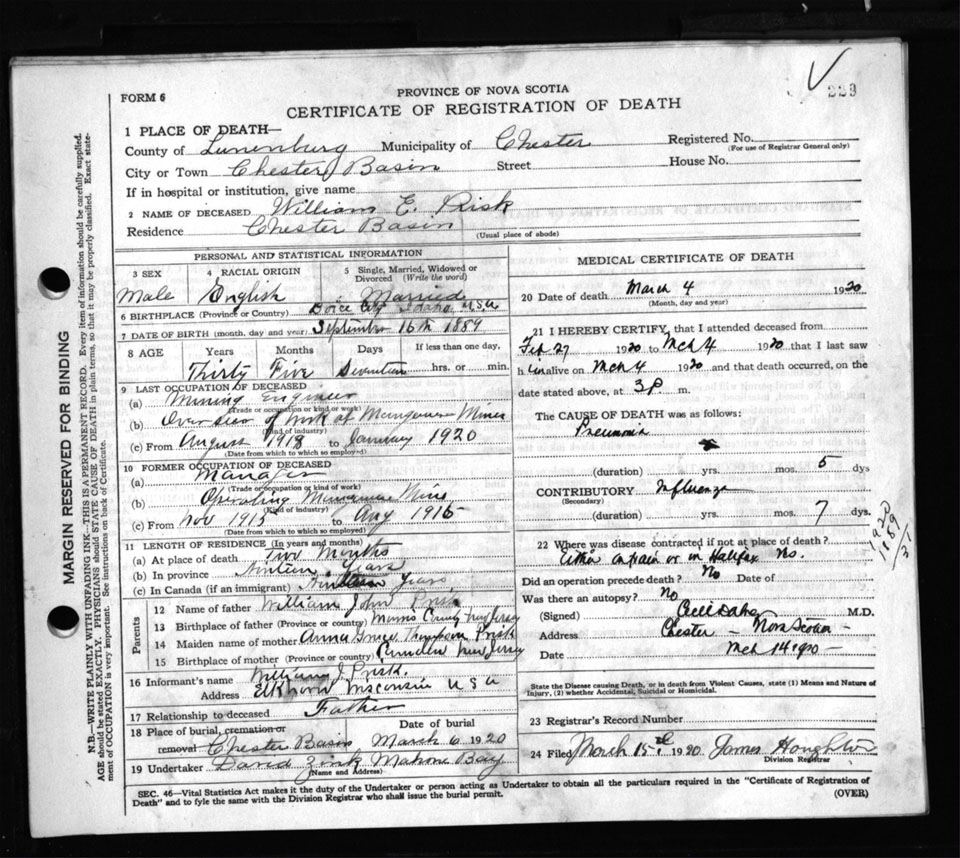 229
FORM 6
PROVINCE OF NOVA SCOTIA
CERTIFICATE OF REGISTRATION OF DEATH
1 PLACE OF DEATH—
County of Lunenburg Municipality of Chester Registered No.
(For use of Registrar General only)
City or Town Chester Basin Street House No.
If in hospital or institution, give name
2 NAME OF DECEASED William E. Prisk
Residence Chester Basin
(Usual place of abode)
PERSONAL AND STATISTICAL INFORMATION
3 SEX 4 RACIAL ORIGIN 5 Single, Married, Widowed or Divorced (Write the word)
Male English Married
6 BIRTHPLACE (Province or Country) City Idaho, U.S.A
7 DATE OF BIRTH (month, day and year) September 16th 1884
8 AGE Years Months Days If less than one day,
Thirty Five hrs. or min.
9 LAST OCCUPATION OF DECEASED
(a) Mining Engineer
(Trade or occupation or kind or work)
(b) Overseer of Work at Manganese Mines
(Kind of industry)
(c) From August 1918 to January 1920
(Date from which to which so employed)
10 FORMER OCCUPATION OF DECEASED
(a) Manager
(Trade or occupation or kind of work)
(b) Operating Manganese Mine
(Kind of industry)
(c) From Nov 1915 to Aug 1918
(Date from which to which so employed)
11 LENGTH OF RESIDENCE (In years and months)
(a) At place of death Two Months
(b) In province Years
(c) In Canada (if an immigrant) Years
Parents
12 Name of father William John Prisk
13 Birthplace of father (Province or country) Morris County New Jersey
14 Maiden name of mother Anna Thompson Prisk
15 Birthplace of mother (Province or country) Camden New Jersey
16 Informant's name William J. Prisk
Address Elkhorn Wisconsin U S A
17 Relationship to deceased Father
18 Place of burial, cremation or removal Chester Basin Date of burial March 6 1920
19 Undertaker David Zink Mahone Bay
(Name and Address)
MEDICAL CERTIFICATE OF DEATH
20 Date of death March 4 1920
(Month, day and year)
21 I HEREBY CERTIFY, that I attended deceased from
Feb 27 1920 to Mch 4 1920 that I last saw
h im alive on Mch 4 1920 and that death occurred, on the
date stated above, at 3 p m.
The CAUSE OF DEATH was as follows:
Pneumonia
(duration) yrs. mos. 5 dys
CONTRIBUTORY Influenza
(Secondary)
(duration) yrs. mos. 7 dys.
1920
1889
31
22 Where was disease contracted if not at place of death?
Either on train or in Halifax No.
Did an operation precede death? No Date of
Was there an autopsy? No
(Signed) M.D.
Address Chester - Nova Scotia -
Date Mch 14 1920 -
State the Disease causing Death, or in death from Violent Causes, state (1) Means and Nature of
Injury, (2) whether Accidental, Suicidal or Homicidal.
23 Registrar's Record Number
24 Filed March 15th 1920 James Houghton
Division Registrar
SEC. 46—Vital Statistics Act makes it the duty of the Undertaker or person acting as Undertaker to obtain all the particulars required in the "Certificate of Registration of
Death" and to fyle the same with the Division Registrar who shall issue the burial permit. (OVER)
MARGIN RESERVED FOR BINDING
N.B.—WRITE PLAINLY WITH UNFADING INK—THIS IS A PERMANENT RECORD. Every item of information should be carefully supplied.
AGE should be stated EXACTLY. PHYSICIANS should STATE CAUSE OF DEATH in plain terms, so that it may be properly classified. Exact state-
ment of OCCUPATION is very important. See instructions on back of Certificate.